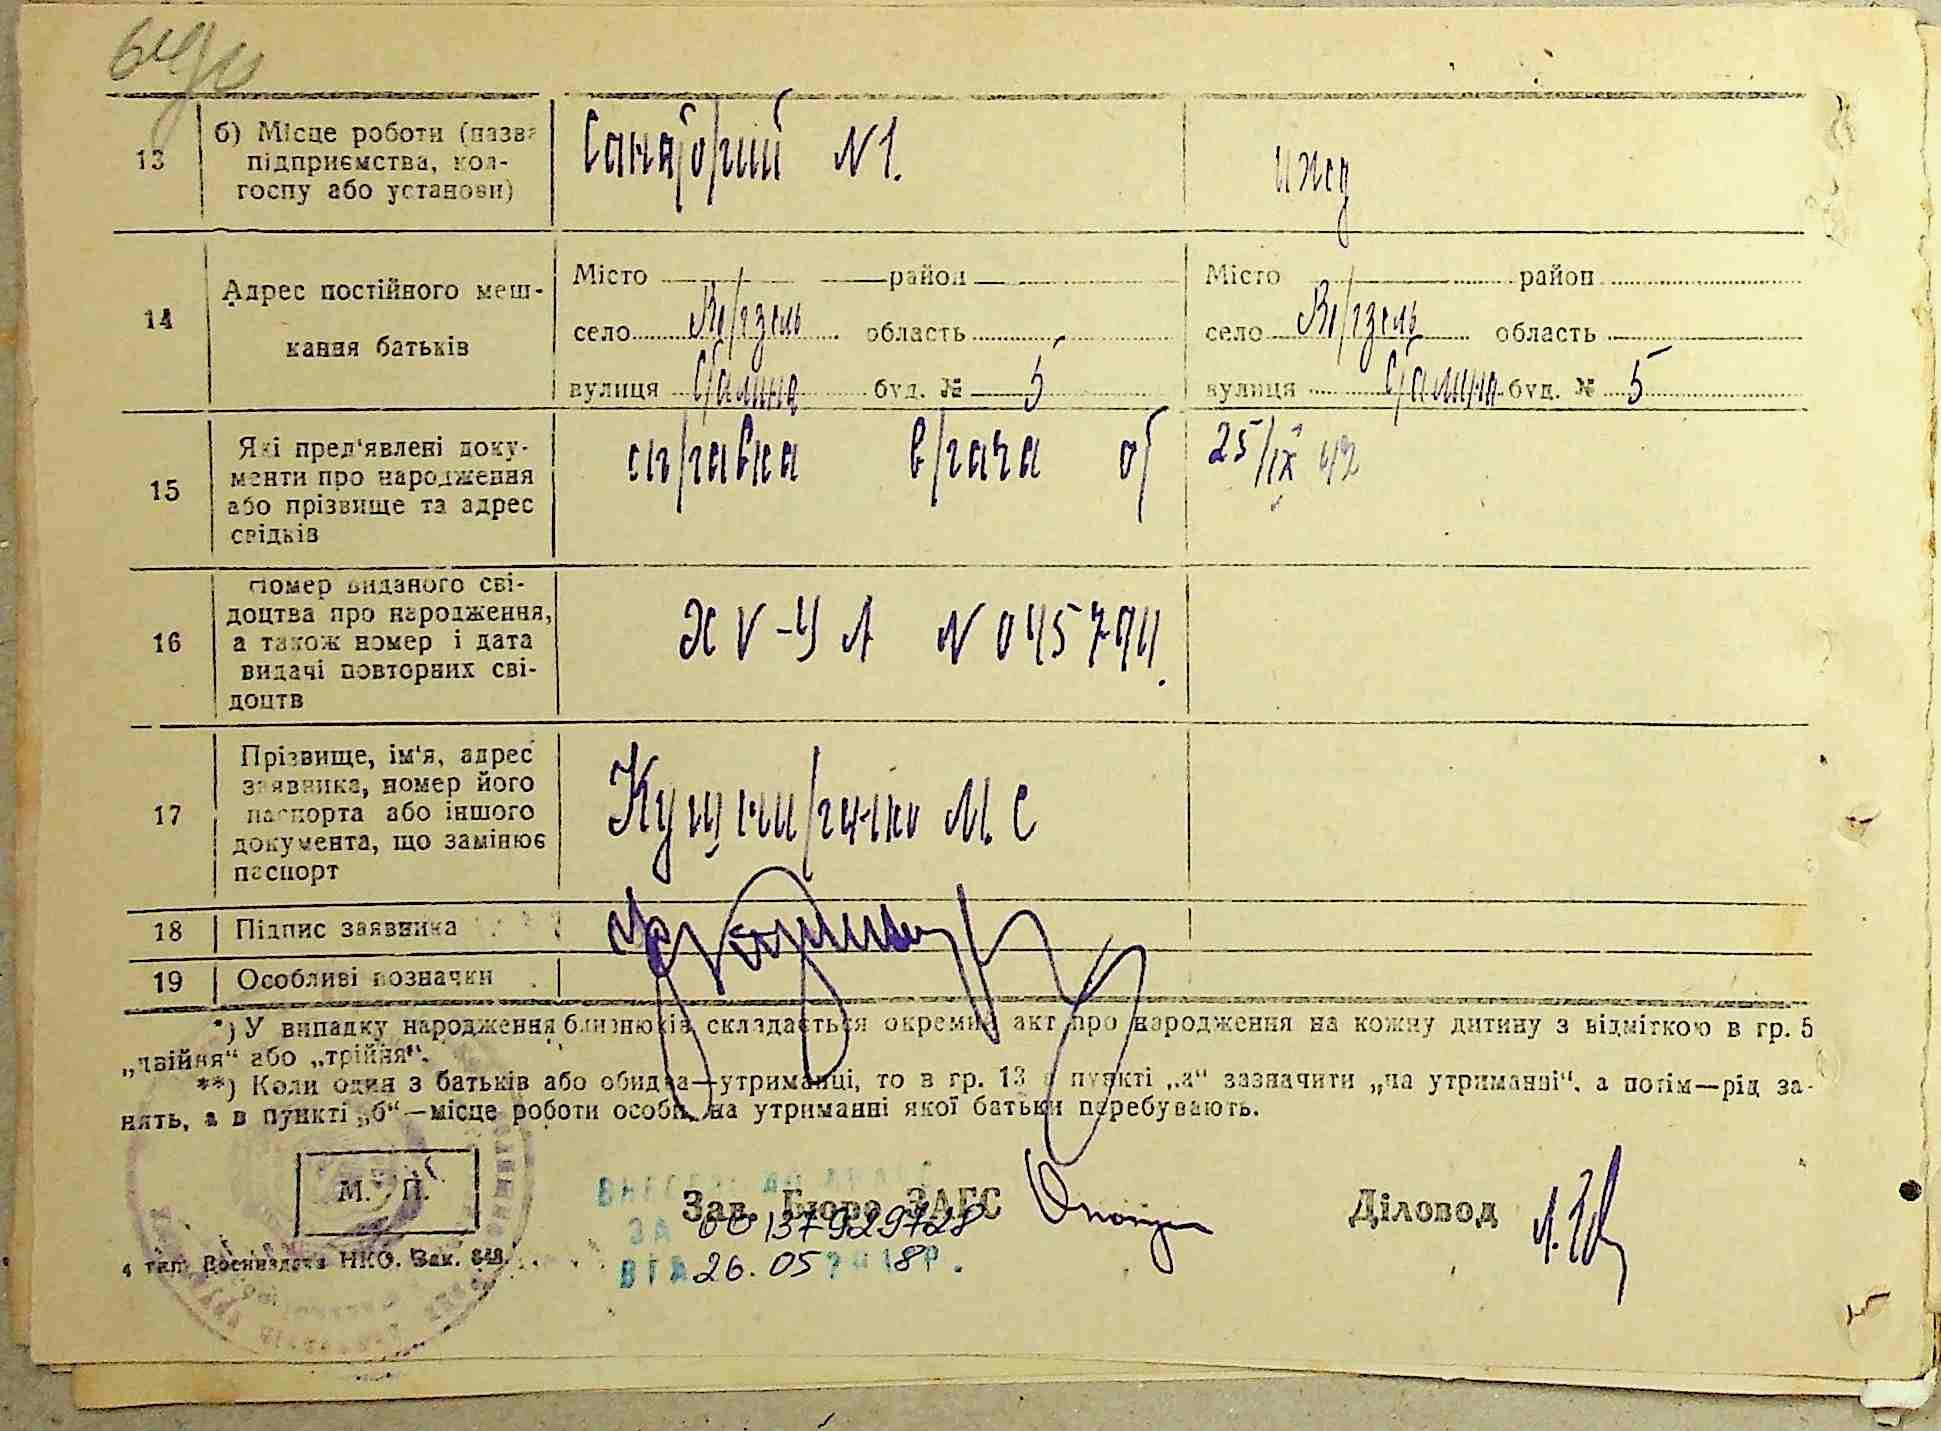 13 б) Місце роботи (назва підприємства, кол-госпу або установи) Санаторий N1. ижд
14 Адрес постійного меш-кання батьків
Місто район Місто район
село Ворзель область село Ворзель область
вулиця Сталина буд. № 5 вулиця Сталина буд. № 5
15 Які пред'явлені доку-менти про народження або прізвище та адрес свідків справка врача от 25/IX
16 Номер виданого сві-доцтва про народження, а також номер і дата видачі повторних сві-доцтв N 045794.
17 Прізвище, ім'я, адрес заявника, номер його паспорта або іншого документа, що замінює паспорт Кушниренко М. С
18 Підпис заявника
19 Особливі позначки
*) У випадку народження близнюків складається окремий акт про народження на кожну дитину з відміткою в гр. 5
„двійня“ або „трійня“.
**) Коли один з батьків або обидва—утриманці, то в гр. 13 в пункті „а“ зазначити „на утриманні“, а потім—рід за-
нять, а в пункті „б“—місце роботи особи, на утриманні якої батьки перебувають.
М. П.
Зав. Бюро ЗАГС Діловод
00137929728
26.05 18Р.
4 тип. Воениздата НКО. Зак. 848.